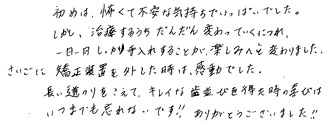 初めは、怖くて不安な気持ちでいっぱいでした。
しかし、治療するうちだんだん変わっていくにつれ、
一日一日しっかり手入れすることが、楽しみへと変わりました。
さいごに矯正装置を外した時は、感動でした。
長い道のりをこえて、キレイな歯並びを得た時の喜びは
いつまでも忘れないです!! ありがとうございました!!